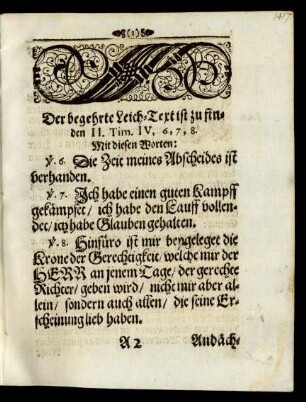 (1)
Der begehrte Leich-Text ist zu fin-
den II. Tim. IV, 6, 7, 8.
Mit diesen Worten:
v. 6. Die Zeit meines Abscheides ist
verhanden.
v. 7. Jch habe einen guten Kampff
gekämpfet/ ich habe den Lauff vollen-
det/ ich habe Glauben gehalten.
v. 8. Hinfüro ist mir beygeleget die
Krone der Gerechtigkeit/ welche mir der
HERR an jenem Tage/ der gerechte
Richter/ geben wird/ nicht mir aber al-
lein/ sondern auch allen/ die seine Er-
scheinung lieb haben.
A 2 Andäch-